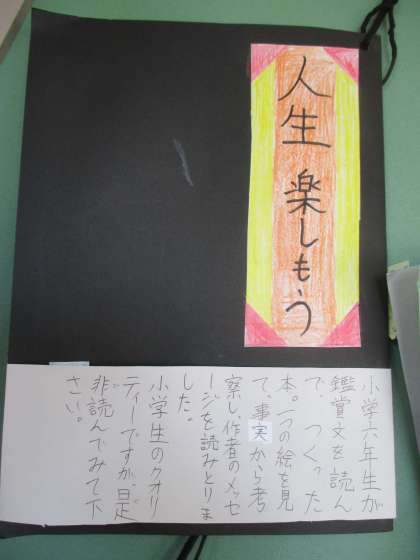 人生 楽しもう
小学六年生が
鑑賞文を読ん
で、つくった
本。一つの絵を見
て、事実から考
察し、作者のメッセ
ージを読みとりま
した。
小学生のクオリ
ティーですが、是
非読んでみて下
さい。